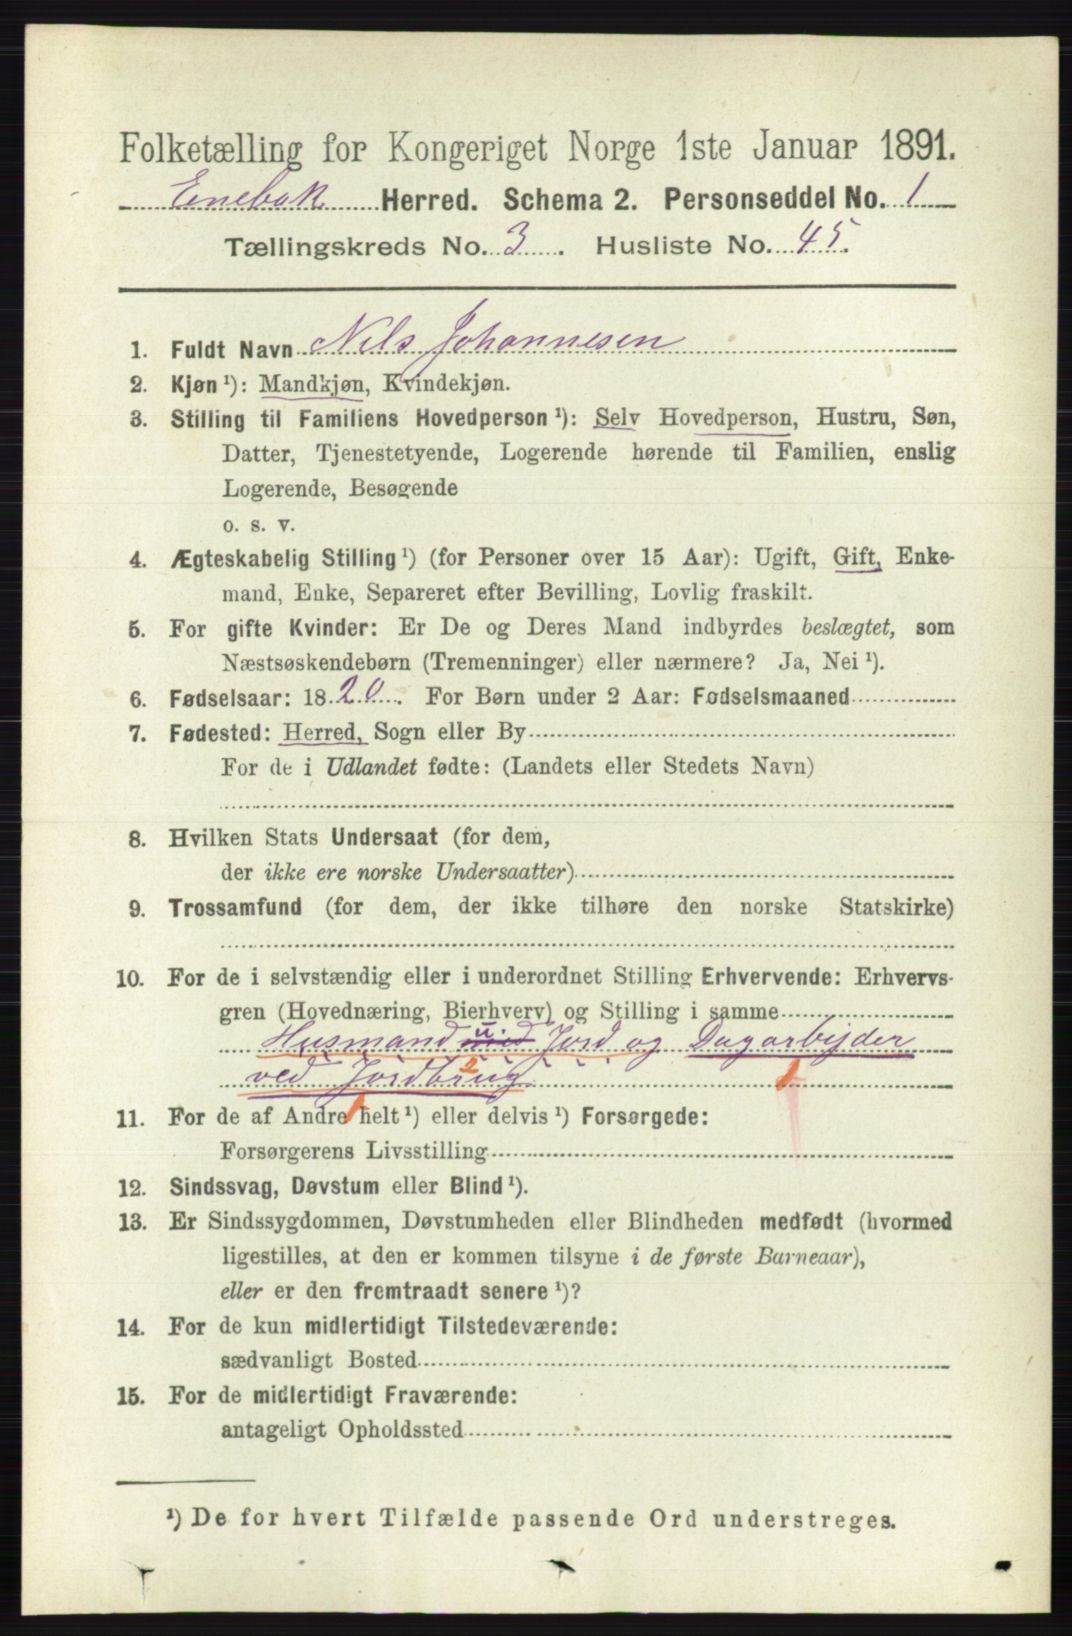 Folketælling for Kongeriget Norge 1ste Januar 1891.
Enebak Herred. Schema 2. Personseddel No. 1
Tællingskreds No. 3. Husliste No. 45.
1. Fuldt Navn Nils Johannesen
2. Kjøn ¹): Mandkjøn, Kvindekjøn.
3. Stilling til Familiens Hovedperson ¹): Selv Hovedperson, Hustru, Søn,
Datter, Tjenestetyende, Logerende hørende til Familien, enslig
Logerende, Besøgende
o. s. v.
4. Ægteskabelig Stilling ¹) (for Personer over 15 Aar): Ugift, Gift, Enke-
mand, Enke, Separeret efter Bevilling, Lovlig fraskilt.
5. For gifte Kvinder: Er De og Deres Mand indbyrdes beslægtet, som
Næstsøskendebørn (Tremenninger) eller nærmere? Ja, Nei ¹).
6. Fødselsaar: 1820. For Børn under 2 Aar: Fødselsmaaned
7. Fødested: Herred, Sogn eller By
For de i Udlandet fødte: (Landets eller Stedets Navn)
8. Hvilken Stats Undersaat (for dem,
der ikke ere norske Undersaatter)
9. Trossamfund (for dem, der ikke tilhøre den norske Statskirke)
10. For de i selvstændig eller i underordnet Stilling Erhvervende: Erhvervs-
gren (Hovednæring, Bierhverv) og Stilling i samme
Husmand med u. Jord og Dagarbejder
ved Jordbrug 2 1
11. For de af Andre helt ¹) eller delvis ¹) Forsørgede:
Forsørgerens Livsstilling
12. Sindssvag, Døvstum eller Blind ¹).
13. Er Sindssygdommen, Døvstumheden eller Blindheden medfødt (hvormed
ligestilles, at den er kommen tilsyne i de første Barneaar),
eller er den fremtraadt senere ¹)?
14. For de kun midlertidigt Tilstedeværende:
sædvanligt Bosted
15. For de midlertidigt Fraværende:
antageligt Opholdssted
¹) De for hvert Tilfælde passende Ord understreges.